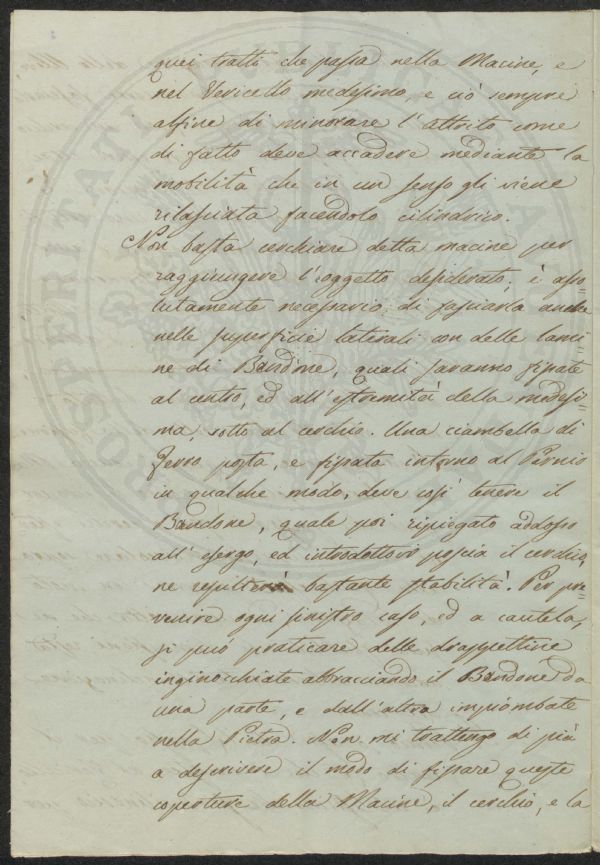 quei tratti che passa nella Macine, e
nel Vericello medesimo, e ciò sempre
alfine di minorare l'attrito come
di fatto deve accadere mediante la
mobilità che in un senso gli viene
rilasciata facendolo cilindrico.
Non basta cerchiare detta macine per
raggiungere l'oggetto desiderato, è asso=
lutamente necessario di fasciarla anche
nelle superficie laterali con delle lami=
ne di Bandone, quali saranno fissate
al centro, ed all'estremità della medesi=
ma, sotto al cerchio. Una ciambella di
ferro posta, e fissata intorno al Pernio
in qualche modo, deve così tenere il
Bandone, quale poi ripiegato addosso
all'esergo, ed introdottovi poscia il cerchio,
ne resulterà bastante stabilità. Per pre=
venire ogni sinistro caso, ed a cautela,
si può praticare delle
inginocchiate abbracciando il Bandone da
una parte, e dall'altra impiombate
nella Pietra. Non mi trattengo di più
a descrivere il modo di fissare queste
coperture della Macine, il cerchio, e la
PROSPERITATI PUBLICAE